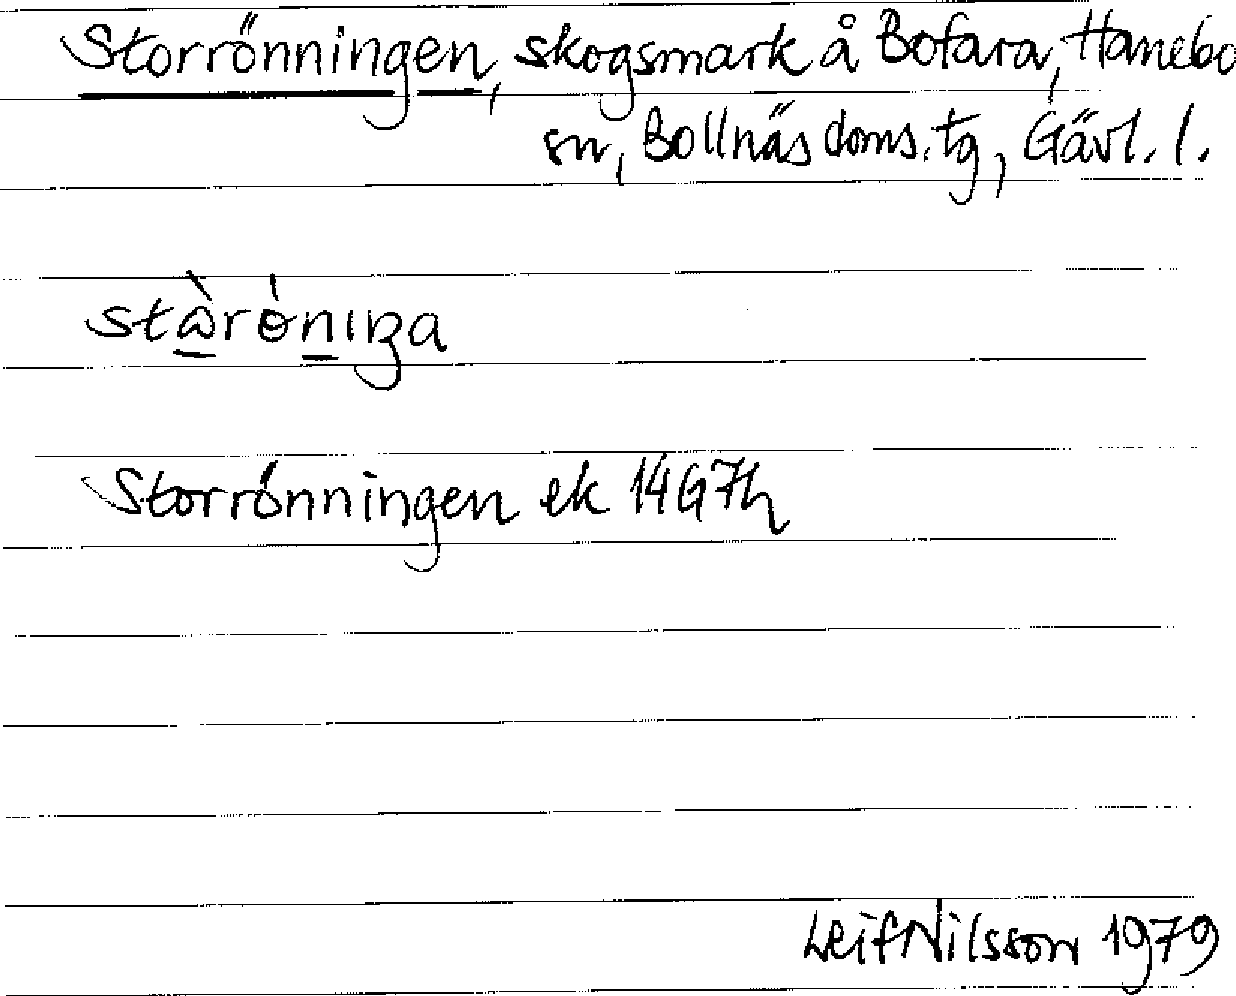 Storrönningen, skogsmark å Bofara, Hanebo
sn, Bollnäs doms. tg, Gävl. l.
Storrönningen ek 14G7h
Leif Nilsson 1979